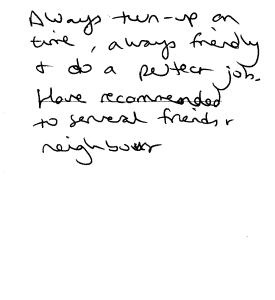 Always turn-up on
time, always friendly
+ do a perfect job.
Have recommended
to several friends +
neighbour